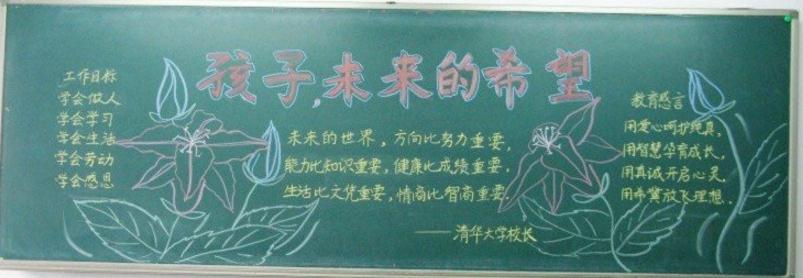 孩子,未来的希望
工作目标
学会做人
学会学习
学会生活
学会劳动
学会感恩
未来的世界,方向比努力重要,
能力比知识重要,健康比成绩重要,
生活比文凭重要,情商比智商重要.
——清华大学校长
教育感言
用爱心呵护纯真,
用智慧孕育成长,
用真诚开启心灵,
用希冀放飞理想.